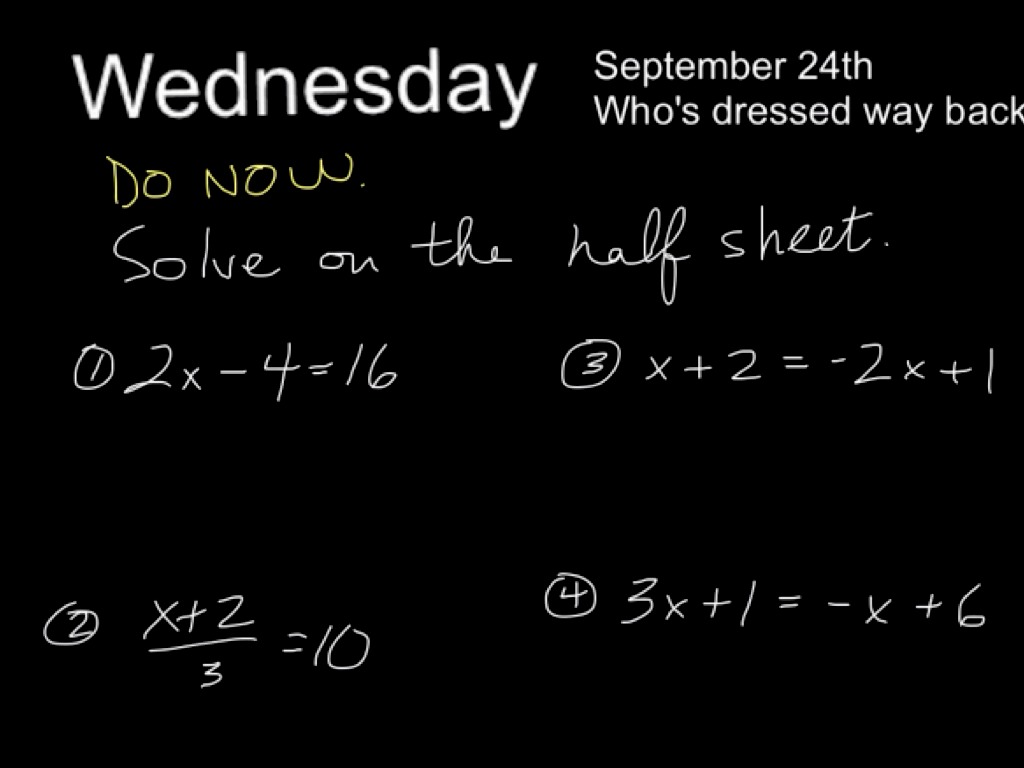 Wednesday
September 24th
Who's dressed way back
DO NOW.
Solve on the half sheet.
① 2x - 4 = 16
③ x + 2 = -2x + 1
② (x+2)/3 = 10
④ 3x + 1 = -x + 6